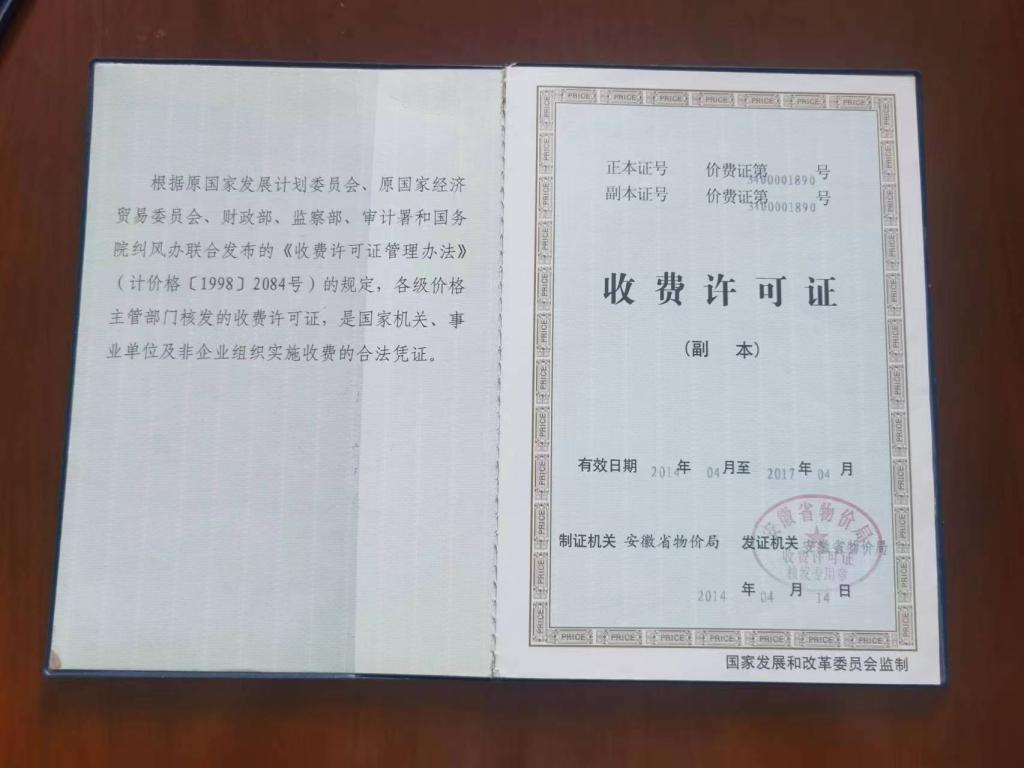 根据原国家发展计划委员会、原国家经济
贸易委员会、财政部、监察部、审计署和国务
院纠风办联合发布的《收费许可证管理办法》
（计价格〔1998〕2084号）的规定，各级价格
主管部门核发的收费许可证，是国家机关、事
业单位及非企业组织实施收费的合法凭证。
PRICE PRICE PRICE PRICE PRICE PRICE PRICE
正本证号 价费证第3400001890号
副本证号 价费证第3400001890号
收费许可证
（副 本）
有效日期 2014年 04月至 2017年04 月
制证机关 安徽省物价局 发证机关 安徽省物价局
安徽省物价局
收费许可证
核发专用章
2014 年 04 月 14 日
PRICE PRICE PRICE PRICE PRICE PRICE PRICE
国家发展和改革委员会监制